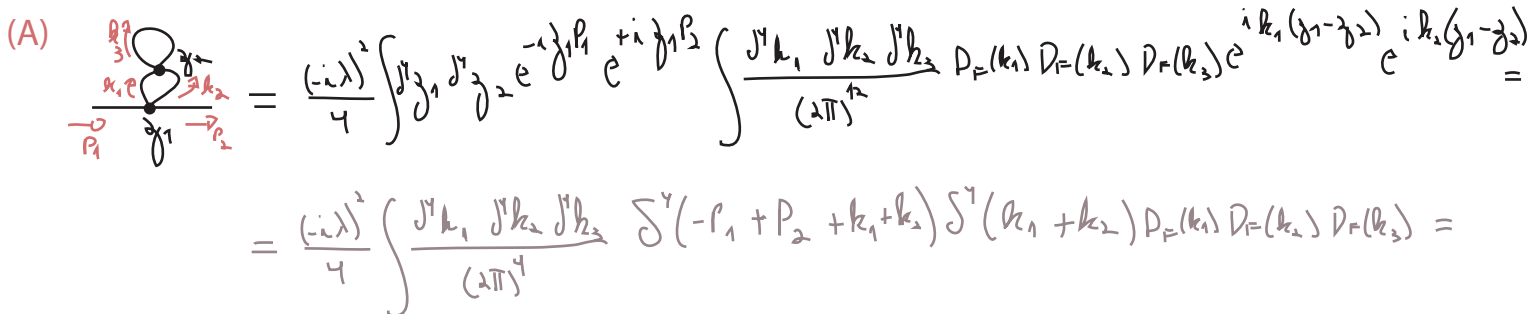 (A)
k₃ z₂
k₁ k₂ = (-iλ)²/4 ∫ d⁴z₁ d⁴z₂ e^{-i z₁P₁} e^{+i z₁P₂} ∫ d⁴k₁ d⁴k₂ d⁴k₃/(2π)¹² D_F(k₁) D_F(k₂) D_F(k₃) e^{i k₁(z₁-z₂)} e^{i k₂(z₁-z₂)} =
P₁ z₁ P₂
= (-iλ)²/4 ∫ d⁴k₁ d⁴k₂ d⁴k₃/(2π)⁴ δ⁴(-P₁ + P₂ + k₁ + k₂) δ⁴(k₁ + k₂) D_F(k₁) D_F(k₂) D_F(k₃) =